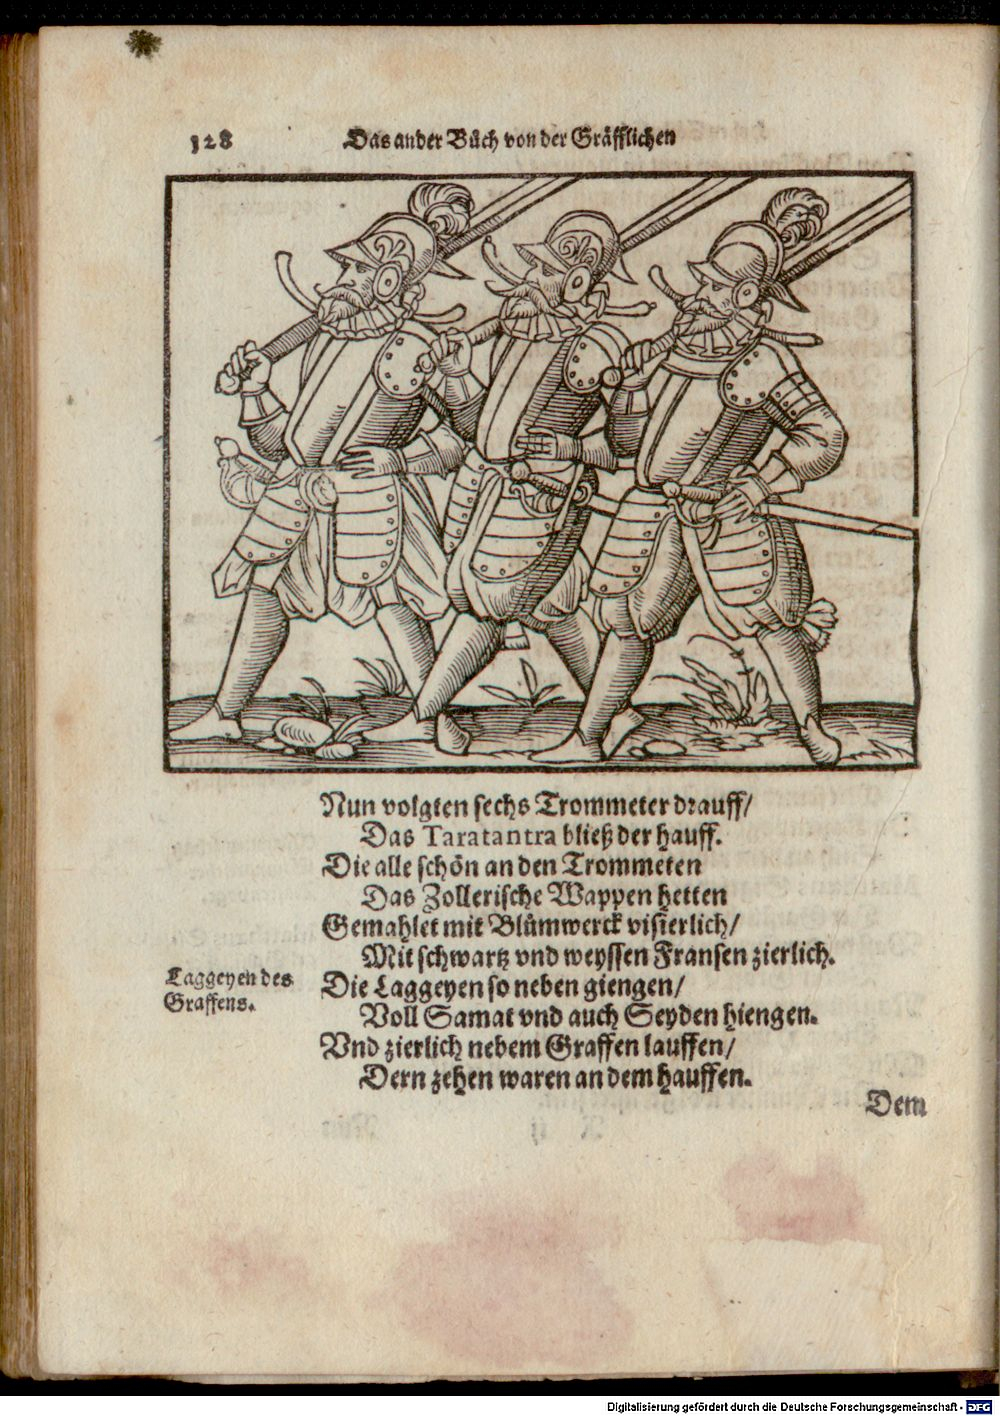 128
Das ander Bůch von der Gräfflichen
Nun volgten sechs Trommeter drauff/
Das Taratantra bließ der hauff.
Die alle schön an den Trommeten
Das Zollerische Wappen hetten
Gemahlet mit Blůmwerck visierlich/
Mit schwartz vnd weyssen Fransen zierlich.
Laggeyen des
Graffens.
Die Laggeyen so neben giengen/
Voll Samat vnd auch Seyden hiengen.
Vnd zierlich nebem Graffen lauffen/
Dern zehen waren an dem hauffen.
Dem
Digitalisierung gefördert durch die Deutsche Forschungsgemeinschaft - DFG